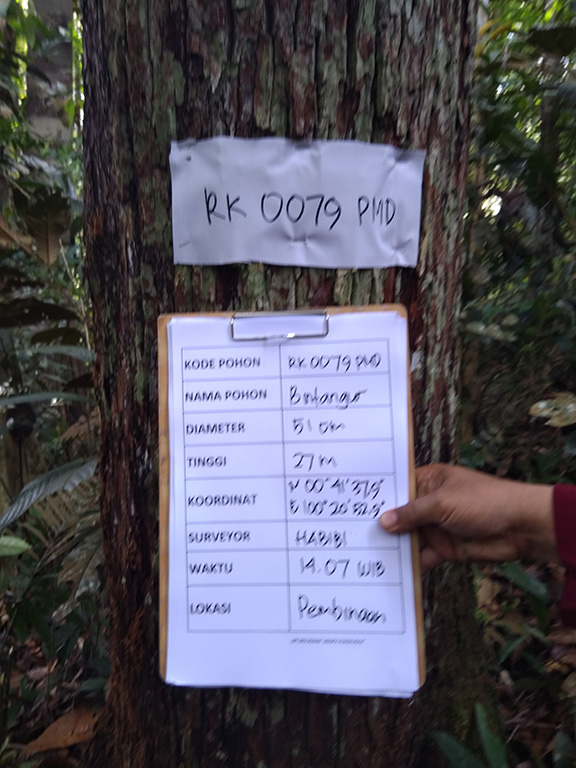 RK 0079 PMD
KODE POHON RK 0079 PMD
NAMA POHON Bintangor
DIAMETER 51 cm
TINGGI 27 m
KOORDINAT N 00°41'37,9"
E 100°20'52,9"
SURVEYOR HABIBI
WAKTU 14.07 WIB
LOKASI Pembinaan